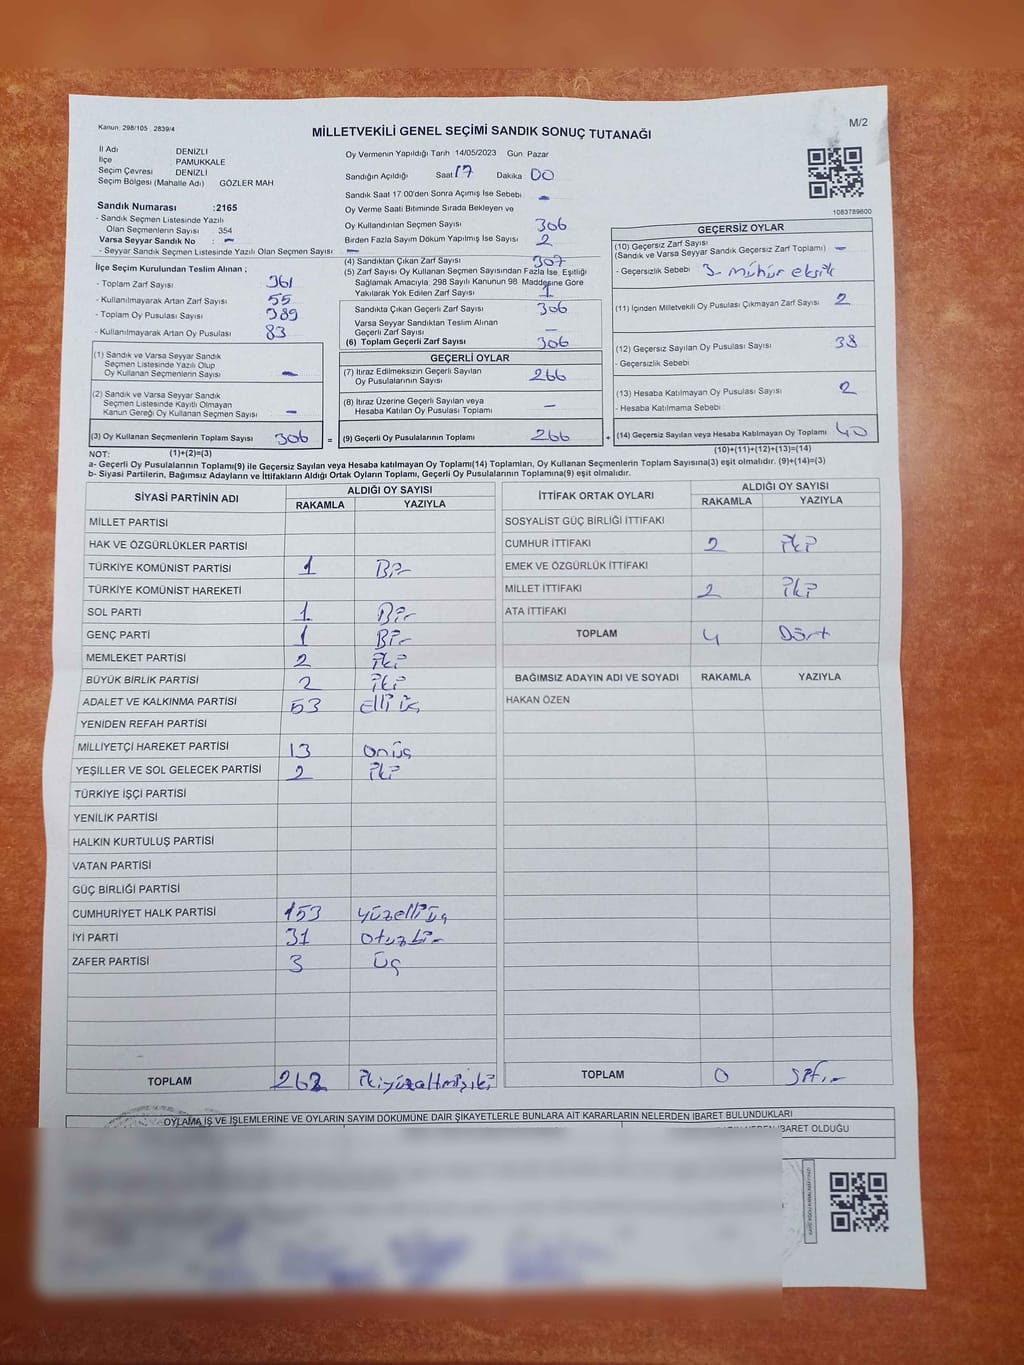 Kanun: 298/105 , 2839/4
M/2
MİLLETVEKİLİ GENEL SEÇİMİ SANDIK SONUÇ TUTANAĞI
İl Adı DENİZLİ
İlçe PAMUKKALE
Seçim Çevresi DENİZLİ
Seçim Bölgesi (Mahalle Adı) GÖZLER MAH.
Sandık Numarası :2165
- Sandık Seçmen Listesinde Yazılı
Olan Seçmenlerin Sayısı : 354
Varsa Seyyar Sandık No : -
- Seyyar Sandık Seçmen Listesinde Yazılı Olan Seçmen Sayısı : -
İlçe Seçim Kurulundan Teslim Alınan ;
- Toplam Zarf Sayısı 361
- Kullanılmayarak Artan Zarf Sayısı 55
- Toplam Oy Pusulası Sayısı 389
- Kullanılmayarak Artan Oy Pusulası 83
(1) Sandık ve Varsa Seyyar Sandık
Seçmen Listesinde Yazılı Olup
Oy Kullanan Seçmenlerin Sayısı -
(2) Sandık ve Varsa Seyyar Sandık
Seçmen Listesinde Kayıtlı Olmayan
Kanun Gereği Oy Kullanan Seçmen Sayısı -
(3) Oy Kullanan Seçmenlerin Toplam Sayısı 306 =
Oy Vermenin Yapıldığı Tarih 14/05/2023 Gün Pazar
Sandığın Açıldığı Saat 17 Dakika 00
Sandık Saat 17.00'den Sonra Açımış İse Sebebi -
Oy Verme Saati Bitiminde Sırada Bekleyen ve
Oy Kullandırılan Seçmen Sayısı 306
Birden Fazla Sayım Döküm Yapılmış İse Sayısı 2
(4) Sandıktan Çıkan Zarf Sayısı 307
(5) Zarf Sayısı Oy Kullanan Seçmen Sayısından Fazla İse, Eşitliği
Sağlamak Amacıyla, 298 Sayılı Kanunun 98. Maddesine Göre
Yakılarak Yok Edilen Zarf Sayısı 1
Sandıkta Çıkan Geçerli Zarf Sayısı 306
Varsa Seyyar Sandıktan Teslim Alınan
Geçerli Zarf Sayısı -
(6) Toplam Geçerli Zarf Sayısı 306
GEÇERLİ OYLAR
(7) İtiraz Edilmeksizin Geçerli Sayılan
Oy Pusulalarının Sayısı 266
(8) İtiraz Üzerine Geçerli Sayılan veya
Hesaba Katılan Oy Pusulası Toplamı -
(9) Geçerli Oy Pusulalarının Toplamı 266 +
1083789800
GEÇERSİZ OYLAR
(10) Geçersiz Zarf Sayısı
(Sandık ve Varsa Seyyar Sandık Geçersiz Zarf Toplamı) -
- Geçersizlik Sebebi 3- mühür eksik
(11) İçinden Milletvekili Oy Pusulası Çıkmayan Zarf Sayısı 2
(12) Geçersiz Sayılan Oy Pusulası Sayısı 38
- Geçersizlik Sebebi
(13) Hesaba Katılmayan Oy Pusulası Sayısı 2
- Hesaba Katılmama Sebebi
(14) Geçersiz Sayılan veya Hesaba Katılmayan Oy Toplamı 40
NOT: (1)+(2)=(3) (10)+(11)+(12)+(13)=(14)
a- Geçerli Oy Pusulalarının Toplamı(9) ile Geçersiz Sayılan veya Hesaba katılmayan Oy Toplamı(14) Toplamları, Oy Kullanan Seçmenlerin Toplam Sayısına(3) eşit olmalıdır. (9)+(14)=(3)
b- Siyasi Partilerin, Bağımsız Adayların ve İttifakların Aldığı Ortak Oyların Toplamı, Geçerli Oy Pusulalarının Toplamına(9) eşit olmalıdır.
SİYASİ PARTİNİN ADI ALDIĞI OY SAYISI
RAKAMLA YAZIYLA
MİLLET PARTİSİ
HAK VE ÖZGÜRLÜKLER PARTİSİ
TÜRKİYE KOMÜNİST PARTİSİ 1 Bir
TÜRKİYE KOMÜNİST HAREKETİ
SOL PARTİ 1 Bir
GENÇ PARTİ 1 Bir
MEMLEKET PARTİSİ 2 İki
BÜYÜK BİRLİK PARTİSİ 2 İki
ADALET VE KALKINMA PARTİSİ 53 elli üç
YENİDEN REFAH PARTİSİ
MİLLİYETÇİ HAREKET PARTİSİ 13 onüç
YEŞİLLER VE SOL GELECEK PARTİSİ 2 İki
TÜRKİYE İŞÇİ PARTİSİ
YENİLİK PARTİSİ
HALKIN KURTULUŞ PARTİSİ
VATAN PARTİSİ
GÜÇ BİRLİĞİ PARTİSİ
CUMHURİYET HALK PARTİSİ 153 yüzelli üç
İYİ PARTİ 31 otuzbir
ZAFER PARTİSİ 3 üç
TOPLAM 262 İkiyüzaltmışiki
İTTİFAK ORTAK OYLARI ALDIĞI OY SAYISI
RAKAMLA YAZIYLA
SOSYALİST GÜÇ BİRLİĞİ İTTİFAKI
CUMHUR İTTİFAKI 2 İki
EMEK VE ÖZGÜRLÜK İTTİFAKI
MİLLET İTTİFAKI 2 İki
ATA İTTİFAKI
TOPLAM 4 Dört
BAĞIMSIZ ADAYIN ADI VE SOYADI RAKAMLA YAZIYLA
HAKAN ÖZEN
TOPLAM 0 Sıfır
OYLAMA İŞ VE İŞLEMLERİNE VE OYLARIN SAYIM DÖKÜMÜNE DAİR ŞİKAYETLERLE BUNLARA AİT KARARLARIN NELERDEN İBARET BULUNDUKLARI
NEDEN İBARET OLDUĞU